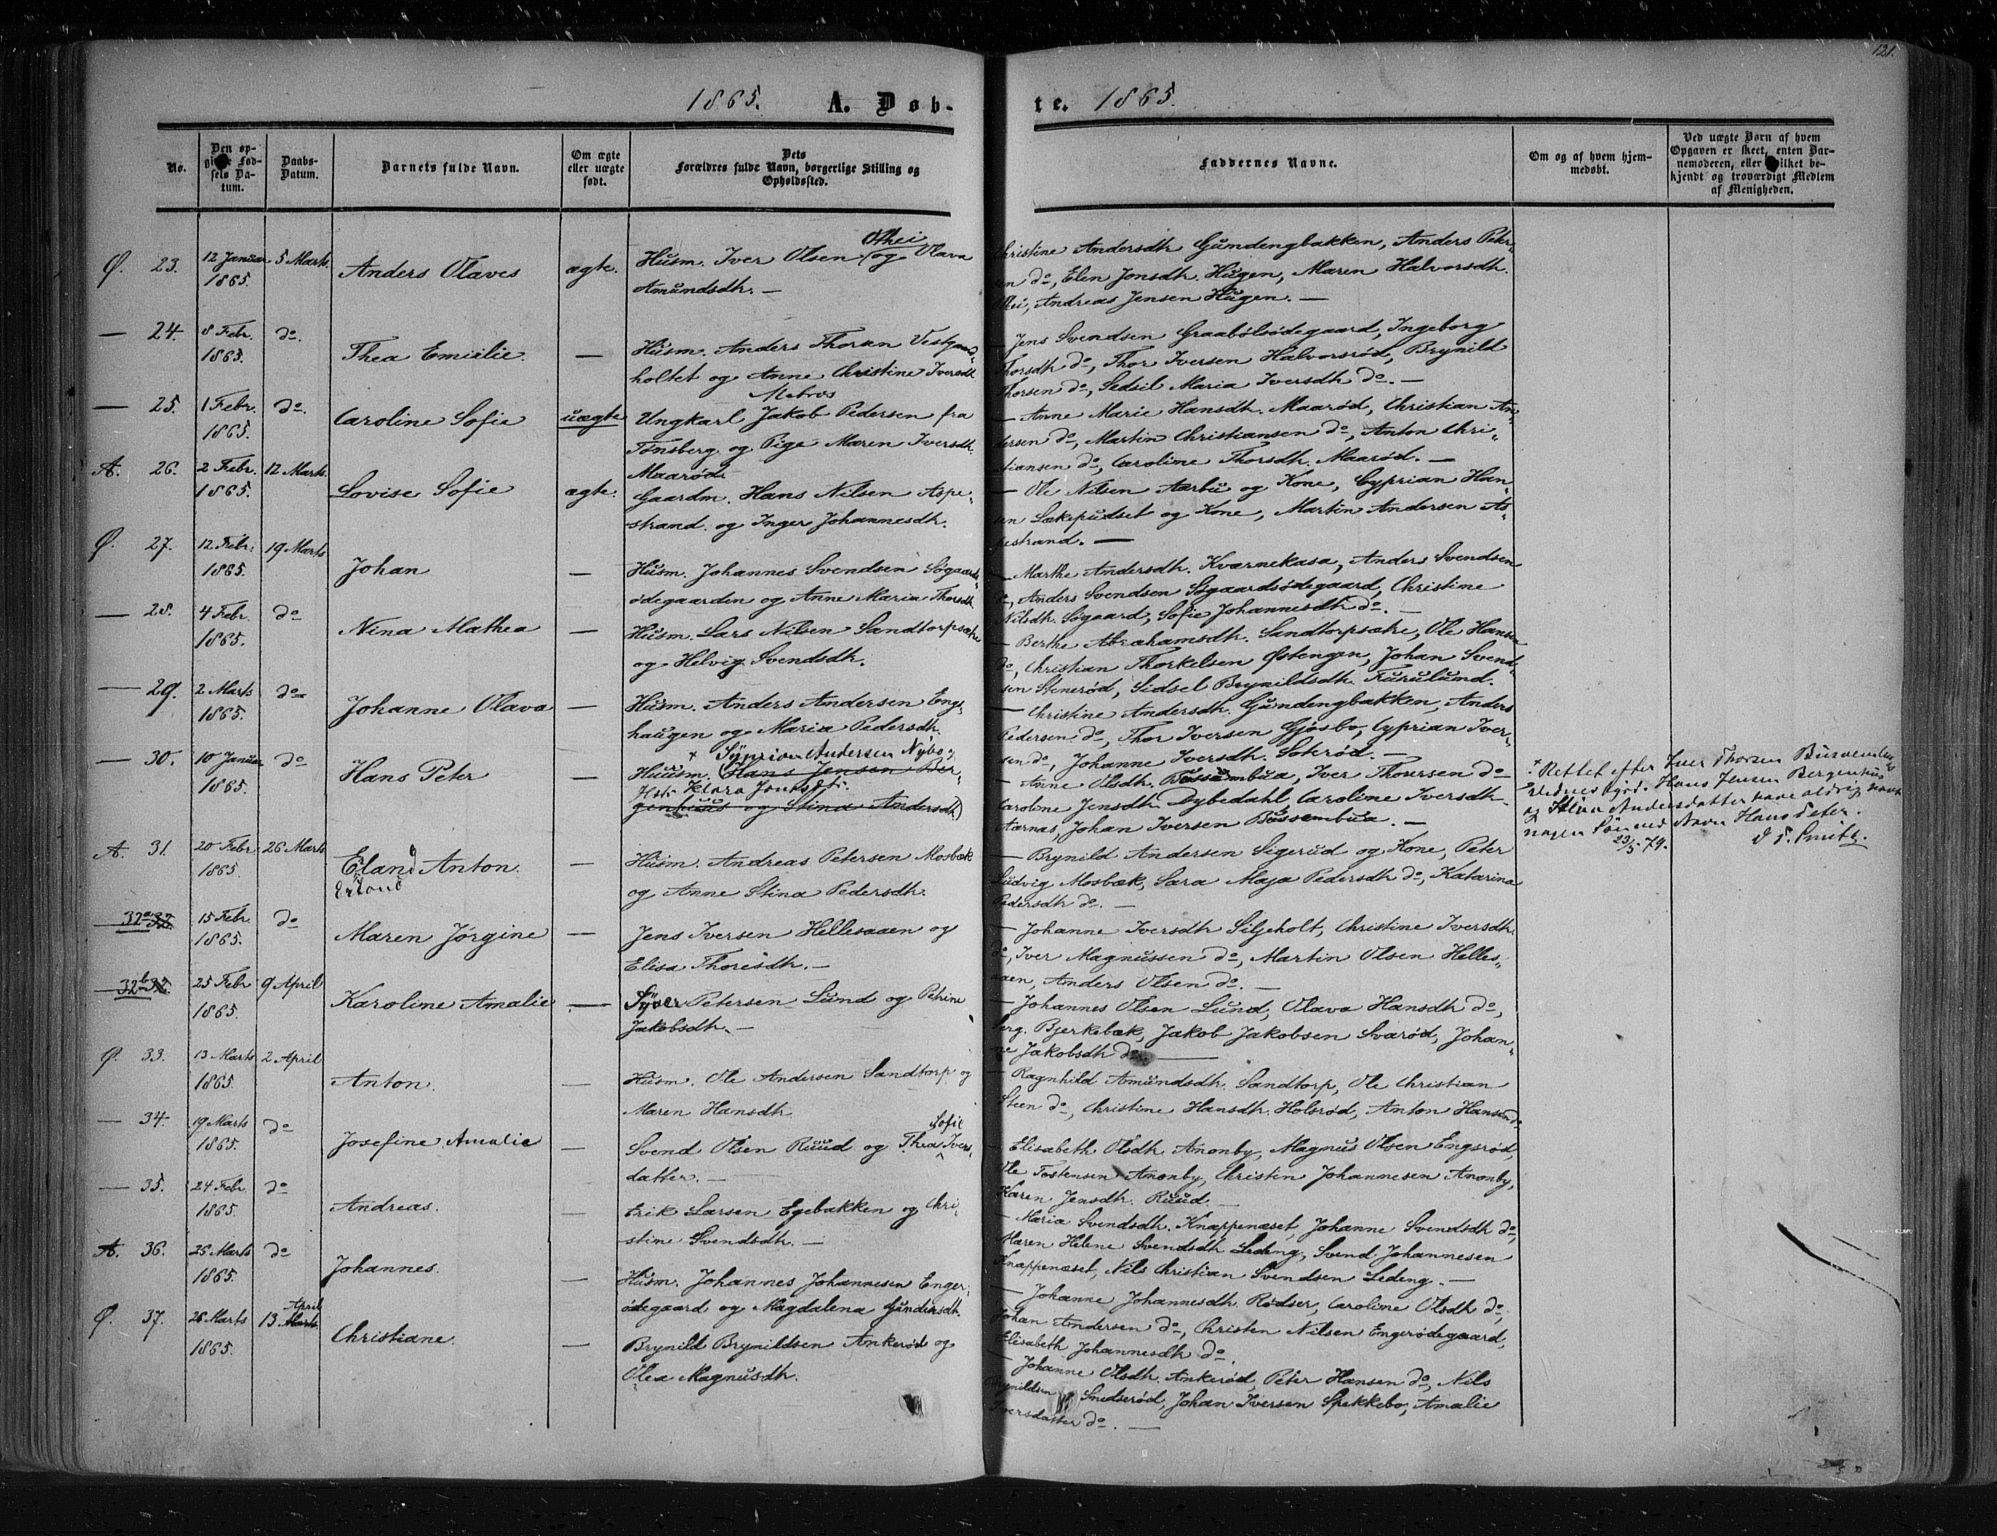 121.
1865. A. Døb-
te. 1865.
No.
Den opgivne Fødsels Datum.
Daabs-Datum.
Barnets fulde Navn.
Om ægte eller uægte født.
Dets Forældres fulde Navn, borgerlige Stilling og Opholdssted.
Faddernes Navne.
Om og af hvem hjemmedøbt.
Ved uægte Barn af hvem Opgaven er skeet, enten Barnemoderen, eller hvilket bekjendt og troværdigt Medlem af Menigheden.
Ø. 23. 12 Januar 1865. 5 Marts Anders Olaves ægte. Husm. Iver Olsen Othei og Olava
Amundsdtr. —
Christine Andersdtr. Gumdengbakken, Anders Peter-
sen do, Elen Jonsdtr. Hugen, Maren Halvorsdtr.
Andreas Jensen Hugen. —
— 24. 8 Febr. 1865. do. Thea Emilie — Husm. Anders Thoran Vestgaard-
holtet og Anne Christine Iversdtr
— Jens Svendsen Graabølsødegaard, Ingeborg
Thorsdtr do, Thor Iversen Halvorsrød, Brynild
Thorsen do, Sidsil Maria Iversdtr do. —
— 25. 1 Febr. 1865. do. Caroline Sofie uægte Ungkarl Jakob Pedersen fra
Tønsberg og Pige Maren Iversdtr.
Maarød
— Anne Marie Hansdtr. Maarød, Christian An-
dersen do, Martin Christiansen do, Anton Chri-
stiansen do, Caroline Thorsdtr. Maarød. —
A. 26. 2 Febr. 1865. 12 Marts Lovise Sofie ægte. Gaardm. Hans Nilsen Aspe-
strand. og Inger Johannesdtr.
— Ole Nilsen Aarbu og Kone, Cyprian Han-
sen Lækepudset og Kone, Martin Andersen As-
pestrand. —
Ø. 27. 12 Febr. 1865. 19 Marts Johan — Husm. Johannes Svendsen Søgaards-
ødegaarden og Anne Maria Thorsdtr
— Marthe Andersdtr. Kværnekasa, Anders Svendsen
do, Anders Svendsen Søgaardsødegaard, Christine
Nilsdtr. Søgaard, Sofie Johannesdtr do. —
— 28. 4 Febr. 1865. do Nina Mathea — Husm. Lars Nilsen Sandtorpsætre
og Helvig Svendsdtr.
— Berthe Abrahamsdtr. Sandtorpsætre, Ole Hansen
do, Christian Thorkelsen Østengen, Johan Svend-
sen Stenerød, Sidsel Brynildsdtr. Furulund.
— 29. 2 Marts 1865. do Johanne Olava — Husm. Anders Andersen Engs-
haugen og Maria Pedersdtr.
— Christine Andersdtr. Gumdengbakken, Anders
Pedersen do, Thor Iversen Gjøsbo, Cyprian Iver-
sen do, Johanne Iversdtr. —
— 30. 10 Januar 1865. do Hans Peter × Syprian Andersen Nybo og
Huusm. Hans Jensen Ber-
Klara Jonsdtr.
genhuus og Stina Andersdtr)
— Anne Olsdtr. Bussembua, Iver Thorersen do
Caroline Jensdtr. Dybedahl, Caroline Iversdtr.
Aarnæs, Johan Iversen Bussembua. —
× Rettet efter Iver Thorsen
Vidnesbyrd. Hans Jensen Bergenhus
og Stina Andersdatter have aldrig havt
nogen Søn ved Navn Hans Peter.
23/5 79.
A. 31. 20 Febr. 1865. 26 Marts Eland Anton.
Erland
— Husm. Andreas Petersen Mosbæk
og Anne Stina Pedersdtr.
— Brynild Andersen Sigerud og Kone, Peter
Ludvig Mosbæk, Sara Maja Pedersdtr do, Katarina
Pedersdtr do. —
32a 32 15 Febr. 1865. do Maren Jørgine — Jens Iversen Hellesaaen og
Elisa Thorisdtr. —
— Johanne Iversdtr. Siljeholt, Christine Iversdtr.
do, Iver Magnussen do, Martin Olsen Helles-
aaen, Anders Olsen do. —
32b 32 25 Febr 1865. 9 April Karoline Amalie — Syver Petersen Lund og Petrine
Jakobsdtr. —
— Johannes Olsen Lund, Olava Hansdtr do,
Bjerkebæk, Jakob Jakobsen Svarød, Johan-
ne Jakobsdtr do —
Ø. 33. 13 Marts 1865. 2 April Anton. — Husm. Ole Andersen Sandtorp og
Maren Hansdtr.
— Ragnhild Amundsdtr. Sandtorp, Ole Christian
Steen do, Christine Hansdtr. Holsrød, Anton Hansen do
— 34. 19 Marts 1865. do Josefine Amalie — Svend Olsen Ruud og Thea Sofie Ivers-
datter. —
— Elisabeth Olsdtr. Anonby, Magnus Olsen Engsrød,
Ole Tostensen Anonby, Christin Johannesen Anonby,
Karen Jensdtr. Ruud —
— 35. 24 Febr 1865. do Andreas. — Erik Larsen Egebakken og Chri-
stine Svendsdtr. —
— Maria Svendsdtr. Knappenæset, Johanne Svendsdtr do,
Maren Helene Svendsdtr Ledeng, Svend Johannesen
Knappenæset, Nils Christian Svendsen Ledeng. —
A. 36. 25 Marts 1865. do Johannes. — Husm. Johannes Johannesen Enger-
ødegaard og Magdalena Gundersdtr.
— Johanne Johannesdtr. Rødser, Caroline Olsdtr do,
Johan Andersen do, Christen Nilsen Engerødegaard,
Elisabeth Johannesdtr do.
Ø. 37. 26 Marts 1865. 13 April Marts Christiane. — Brynild Brynildsen Ankerød og
Olea Magnusdtr.
— Johanne Olsdtr. Ankerød, Peter Hansen do, Nils
Brynildsen Smedserød, Johan Iversen Spekkebo, Amalie
Iversdatter do. —